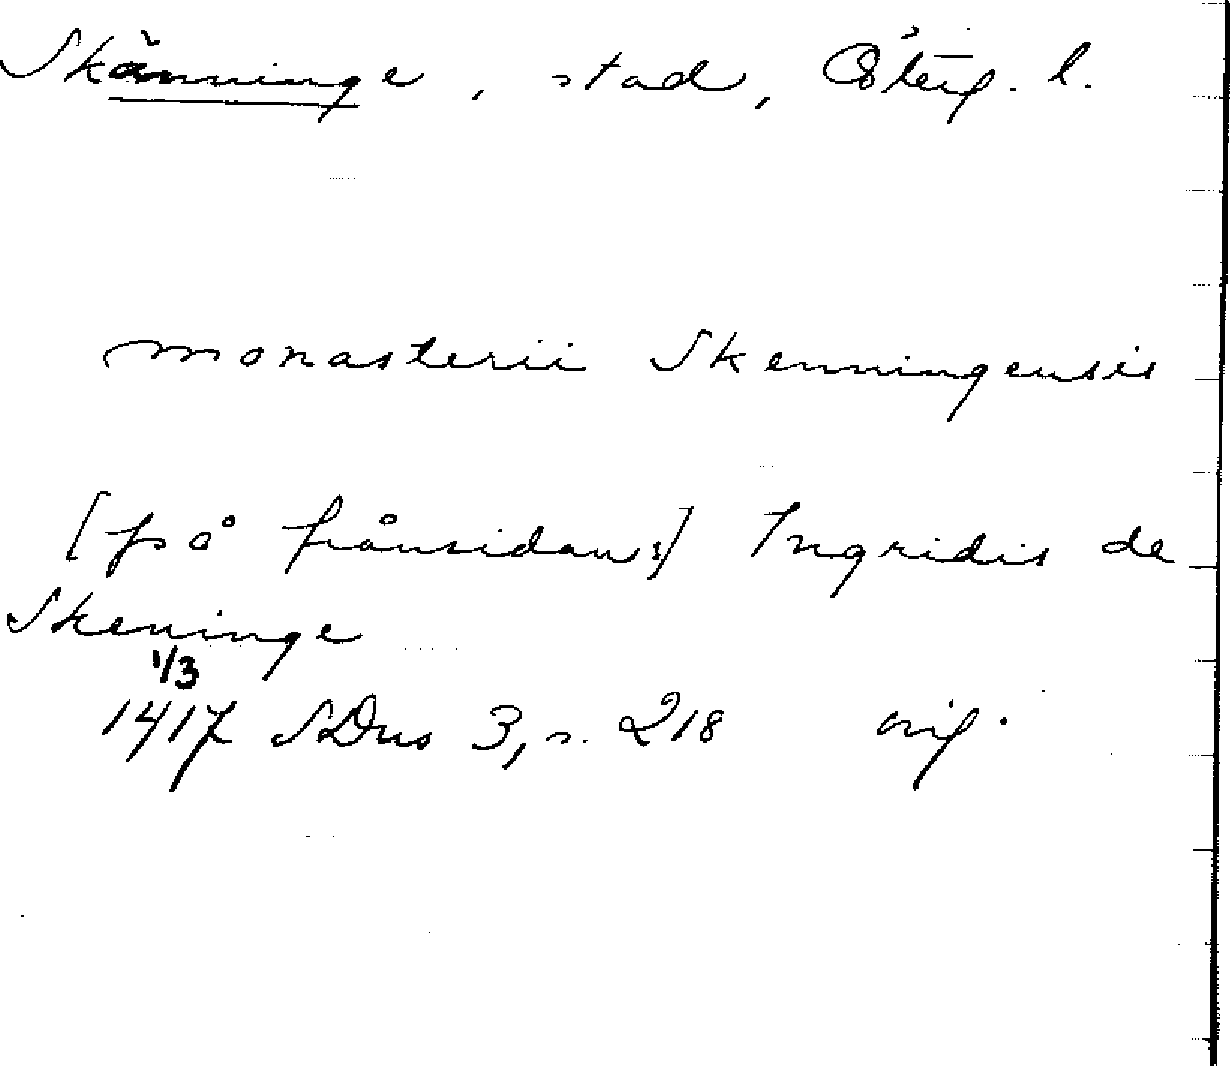 Skänninge, stad, Österg. l.
monasterii Skenningensis
[på frånsidan:] Ingridis de
Skeninge
1/3
1417 SDns 3, s. 218 orig.